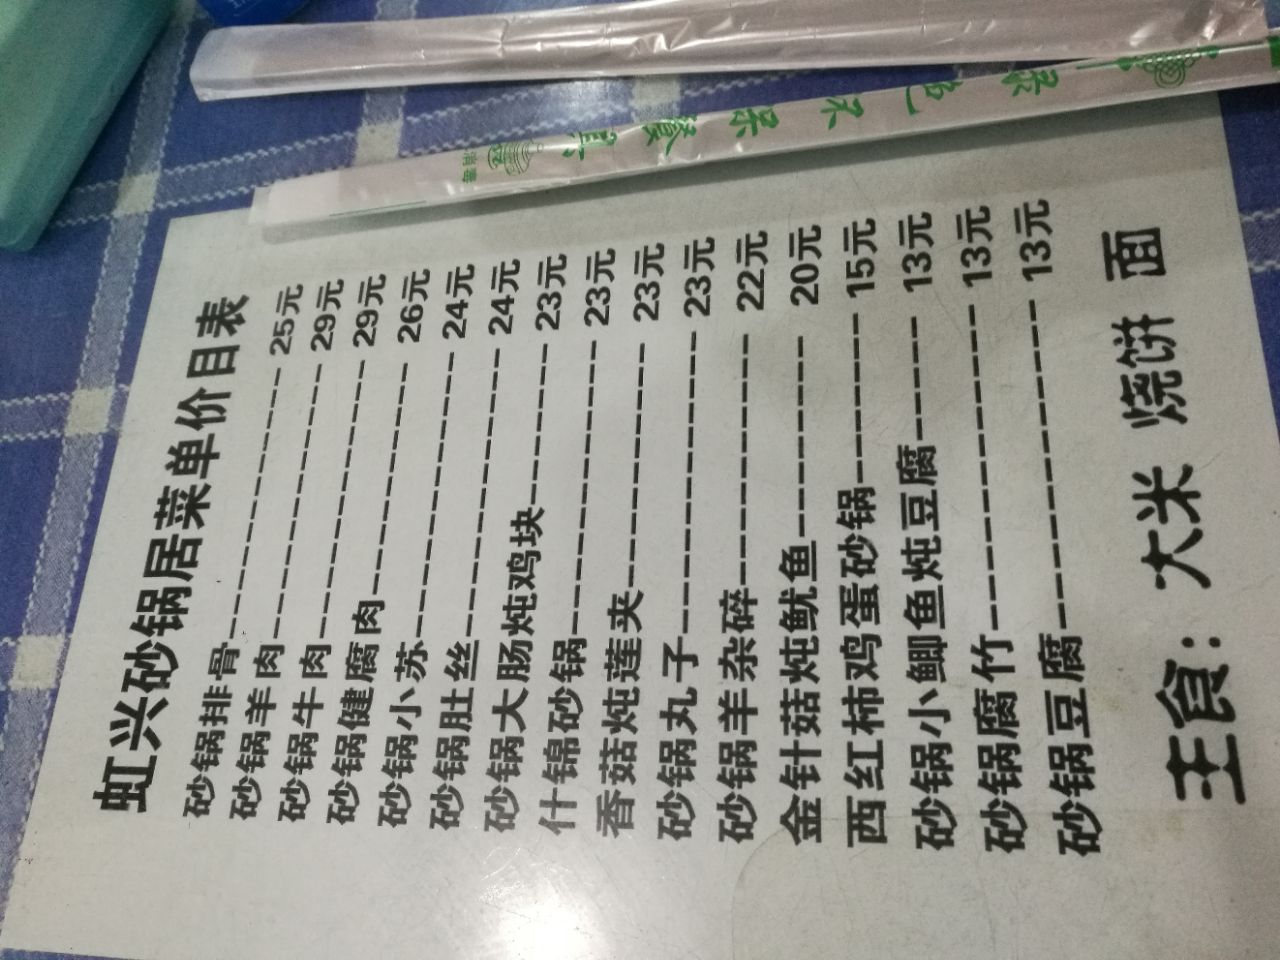 虹兴砂锅居菜单价目表
砂锅排骨 25元
砂锅羊肉 29元
砂锅牛肉 29元
砂锅健腐肉 26元
砂锅小苏 24元
砂锅肚丝 24元
砂锅大肠炖鸡块 23元
什锦砂锅 23元
香菇炖莲夹 23元
砂锅丸子 23元
砂锅羊杂碎 22元
金针菇炖鱿鱼 20元
西红柿鸡蛋砂锅 15元
砂锅小鲫鱼炖豆腐 13元
砂锅腐竹 13元
砂锅豆腐 13元
主食: 大米 烧饼 面